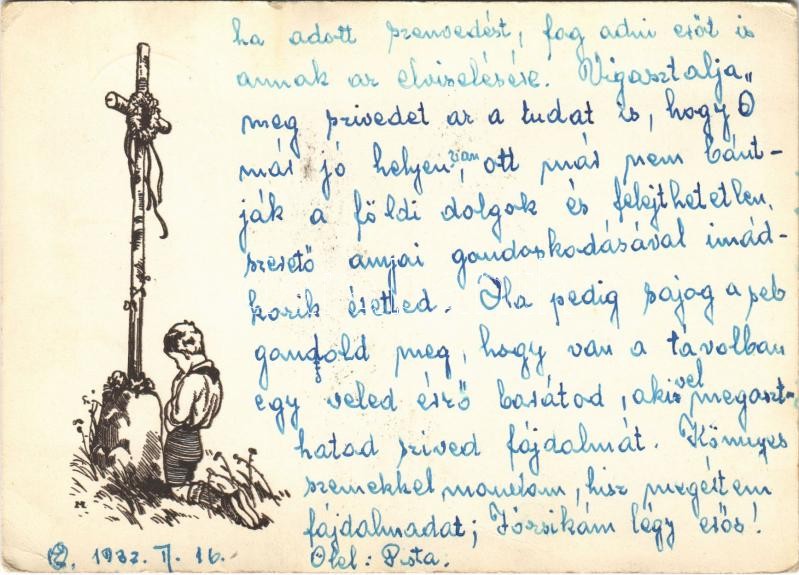 ha adott szenvedést, fog adni erőt is
annak az elviselésére. Vigasztalja„
meg szivedet az a tudat is, hogy Ő
már jó helyen van, ott már nem bánt-
ják a földi dolgok és felejthetetlen,
szerető anyai gondoskodásával imád-
kozik éretted. Ha pedig sajog a seb
gondold meg, hogy van a távolban
egy veled érző barátod, akivel megoszt-
hatod szived fájdalmát. Könnyes
szemekkel mondom, hisz megértem
fájdalmadat; Józsikám légy erős!
Ölel: Pista.
1937. II. 16.